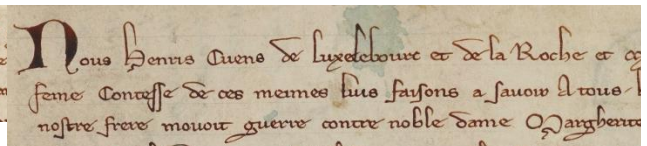 Nous Henris Cuens de luxelebourc et de la Roche et
feme Contesse de ces meimes lius faisons a savoir A tous
nostre frere movoit guerre contre noble dame Margherite